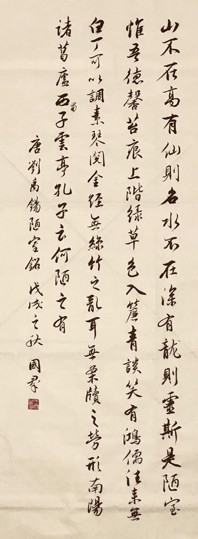 山不在高有仙則名水不在深有龍則靈斯是陋室
惟吾德馨苔痕上階綠草色入簾青談笑有鴻儒往來無
白丁可以調素琴閱金經無絲竹之亂耳無案牘之勞形南陽
諸葛廬西蜀子雲亭孔子云何陋之有
唐劉禹錫陋室銘戊戌之秋國群